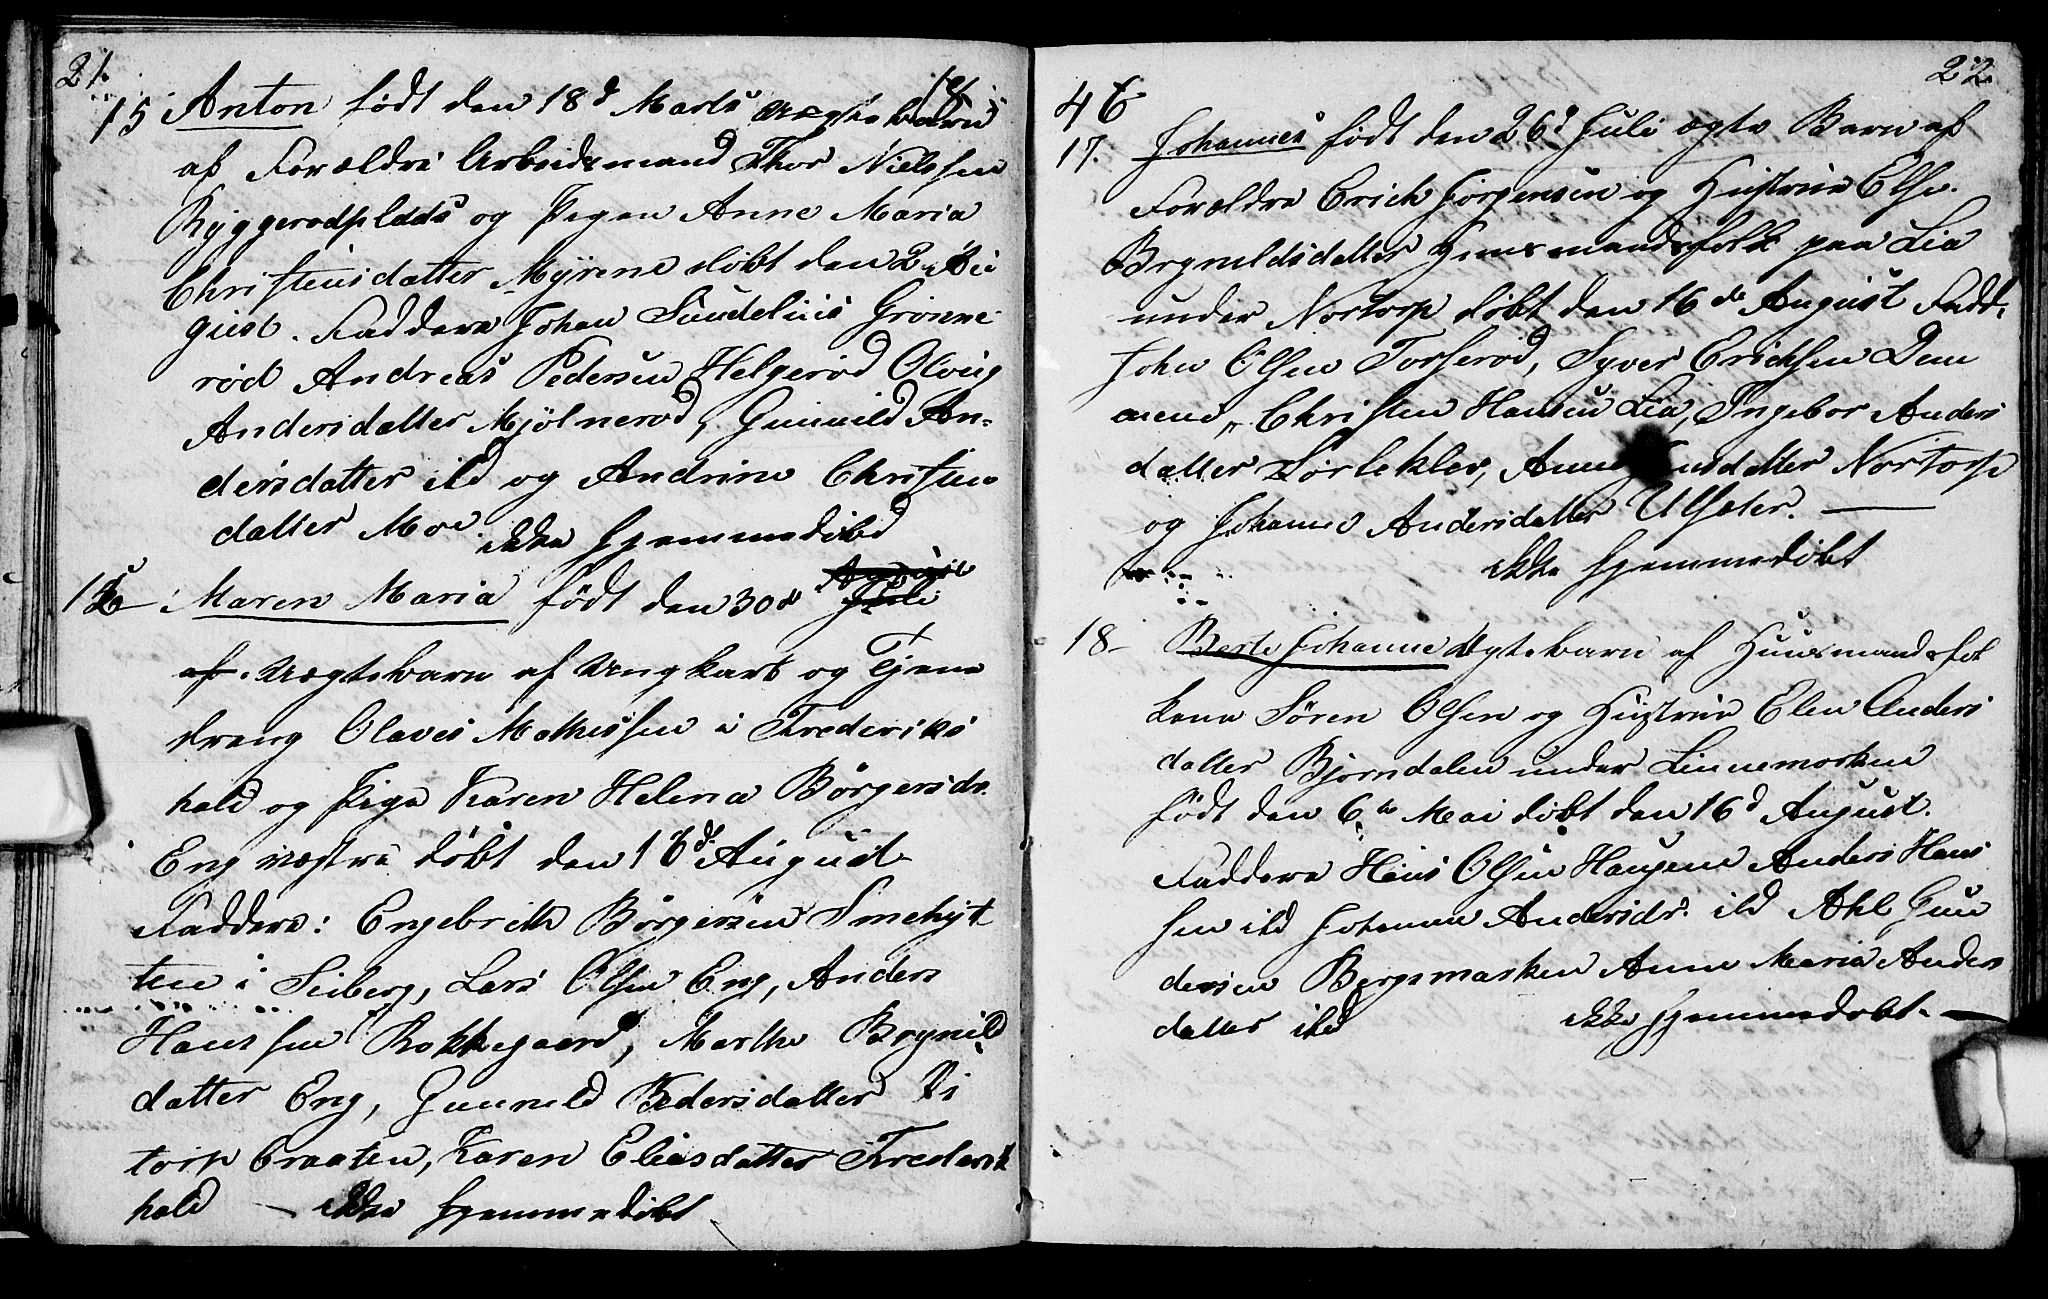 21.
15 Anton født den 18d Marts uægte barn
af Forældre Arbeidsmand Thor Nielssen
Ryggerødplads og Pigen Anne Maria
Christensdatter Myrene døbt den 2 Au
gust. Faddere Johan Grønne
rød Andreas Pedersen Helgerød Olvug
Andersdatter Mjølnerød, Gunnild An-
dersdatter ild og Andrine Christen
datter Moe ikke hjemmedøbt
16 Maren Maria født den 30d Juli
af uægte barn af Ungkarl og Tjene
dreng Olaves Mathissen i Frederiks
hald og Pige Karen Helena Børgersdr.
Eng vestre døbt den 16d August
Faddere: Engebreth Børgersen Smehyt
ten i Seiberg, Lars Olsen Eng, Anders
Hanssen Rokkegaard, Marthe Brynild
datter Eng, Gunnild Pedersdatter Vi
torp Braaten, Karen Eliasdatter Frederik
hald – ikke hjemmedøbt
22.
46
17. Johannes født den 26d Juli ægte Barn af
Forældre Erich Jørgensen og Hustrue Else
Brynildsdatter Huusmandsfolk paa Lia
under Nortorp døbt den 16de August Fadd.
John Olsen Torserød, Syver Erichsen Dam
mene, Christen Hansen Lia, Ingebor Anders
datter Sørleklev, Anne datter Nortorp
og Johanne Andersdatter Ulsæter.
ikke hjemmedøbt
18 Berte Johanne Ægtebarn af Huusmandsfol
kene Søren Olsen og Hustrue Elen Anders
datter Bjørndalen under Linnemorken
født den 6te Mai døbt den 16d August.
Faddere Hans Olsen Haugene Anders Hans
sen ild Johanne Andersdr. ild Ahle Gun
dersen Bergsmarken Anne Maria Anders
datter ild ikke hjemmedøbt.